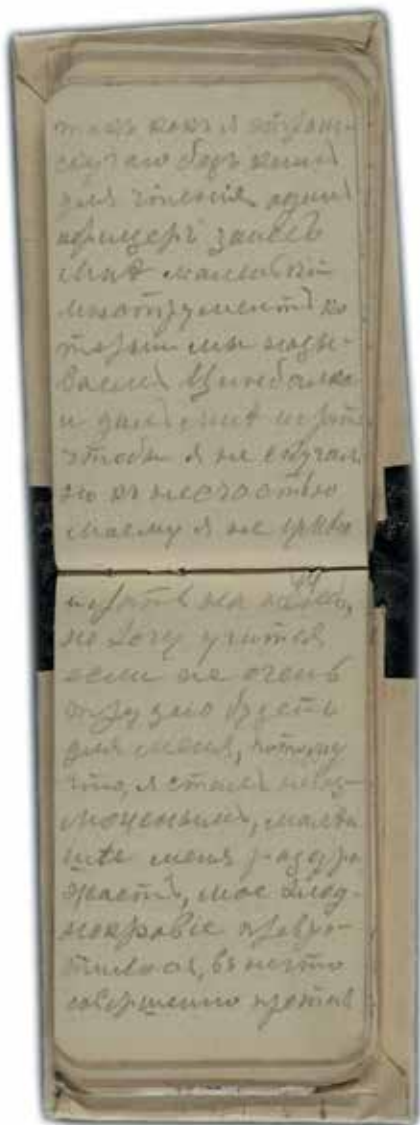 такъ какъ я страш-
скучаю безъ книгъ
для чтенія, одинъ
офицеръ занесъ
мнѣ маленькій
инструментъ ко
торый мы назы-
ваемъ Цимбалка
и далъ мнѣ играть
чтобы я не скучалъ
но къ несчастью
моему я не умѣю
44
играть на немъ,
но хочу учится
если не очень
трудно будетъ
для меня, потому
что, я сталъ
малѣй
ше меня раздра
жаетъ, мое хлад-
нокровіе превра-
тилося, въ нѣчто
совершенно против